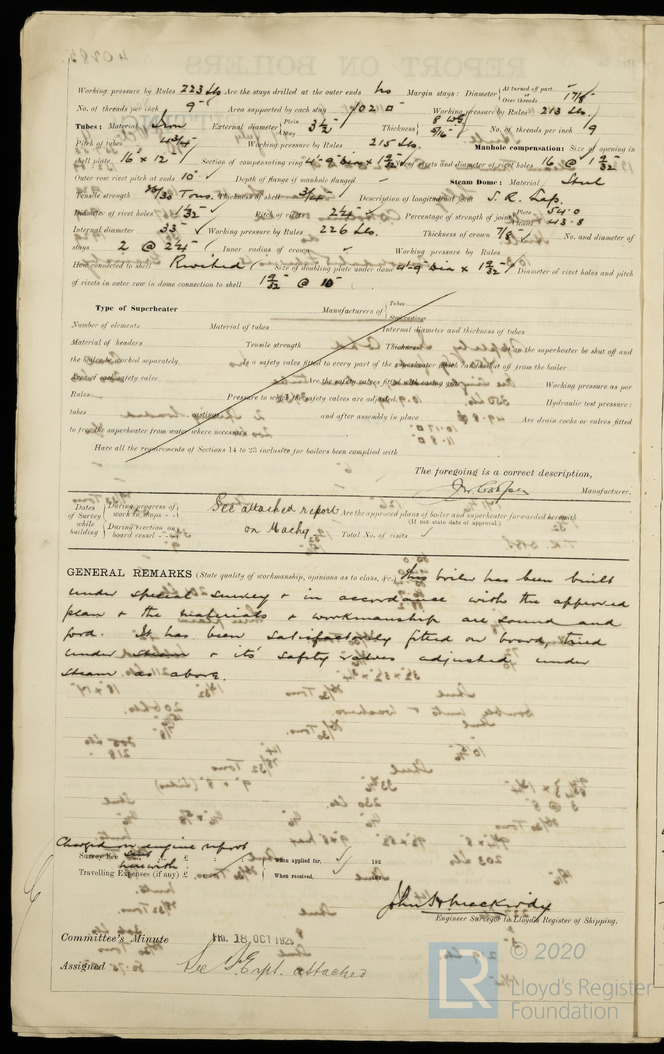 Working pressure by Rules 223 Lbs. Are the stays drilled at the outer ends No Margin stays: Diameter { At turned off part, or Over threads 1 7/8"
No. of threads per inch 9 Area supported by each stay 402 □" Working pressure by Rules 213 Lbs.
Tubes: Material Iron External diameter { Plain Stay 3 1/2" Thickness { 8 W.G. 5/16" No. of threads per inch 9
Pitch of tubes 4 3/4" Working pressure by Rules 215 Lbs. Manhole compensation: Size of opening in
shell plate 16" x 12" Section of compensating ring 4'-9" Dia x 1 9/32" No. of rivets and diameter of rivet holes 16 @ 1 9/32"
Outer row rivet pitch at ends 10" Depth of flange if manhole flanged Steam Dome: Material Steel
Tensile strength Tons. Thickness of shell 3/4" Description of longitudinal joint S. R. Lap.
Diameter of rivet holes Pitch of rivets 2 1/4 Percentage of strength of joint { Plate 54.0 Rivets 43.8
Internal diameter 33" Working pressure by Rules 226 Lbs. Thickness of crown 7/8" No. and diameter of
stays 2 @ 2 1/4" Inner radius of crown Working pressure by Rules
How connected to shell Rivetted Size of doubling plate under dome 4'-9 Dia x 1 9/32" Diameter of rivet holes and pitch
of rivets in outer row in dome connection to shell 1 9/32" @ 10"
Type of Superheater Manufacturers of { Tubes Steel castings
Number of elements Material of tubes Internal diameter and thickness of tubes
Material of headers Tensile strength Thickness Can the superheater be shut off and
the boiler be worked separately Is a safety valve fitted to every part of the superheater which can be shut off from the boiler
Area of each safety valve Are the safety valves fitted with easing gear Working pressure as per
Rules Pressure to which the safety valves are adjusted Hydraulic test pressure:
tubes castings and after assembly in place Are drain cocks or valves fitted
to free the superheater from water where necessary
Have all the requirements of Sections 14 to 23 inclusive for boilers been complied with
The foregoing is a correct description,
Manufacturer.
Dates of Survey while building { During progress of work in shops - - During erection on board vessel - - - } See attached report on Machy Are the approved plans of boiler and superheater forwarded herewith
(If not state date of approval.)
Total No. of visits
GENERAL REMARKS (State quality of workmanship, opinions as to class, &c.) This boiler has been built
under special survey + in accordance with the approved
plan + the materials + workmanship are sound and
good. It has been satisfactorily fitted on board, tried
under steam + its' safety valves adjusted under
steam as above.
Charged on engine report
Survey Fee £ : : } When applied for, 192
herewith
Travelling Expenses (if any) £ : : } When received, 192
Engineer Surveyor to Lloyd's Register of Shipping.
Committee's Minute THU. 18 OCT 1928
Assigned See Rpt. attached
© 2020
LR Lloyd's Register
Foundation